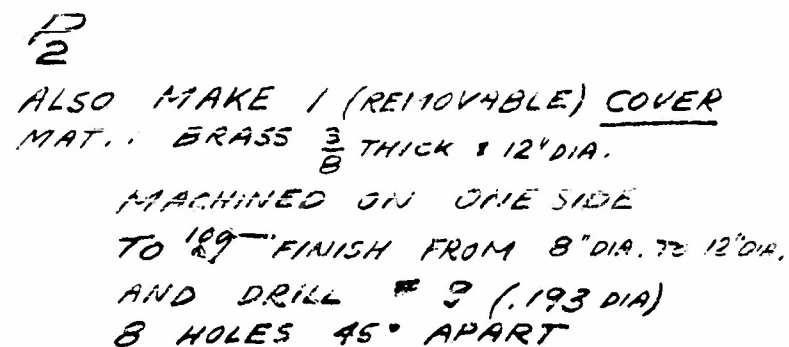 2
ALSO MAKE 1 (REMOVABLE) COVER
MAT.: BRASS 3/8 THICK & 12" DIA.
MACHINED ON ONE SIDE
TO FINISH FROM 8" DIA. TO 12" DIA.
AND DRILL # 9 (.193 DIA)
8 HOLES 45° APART